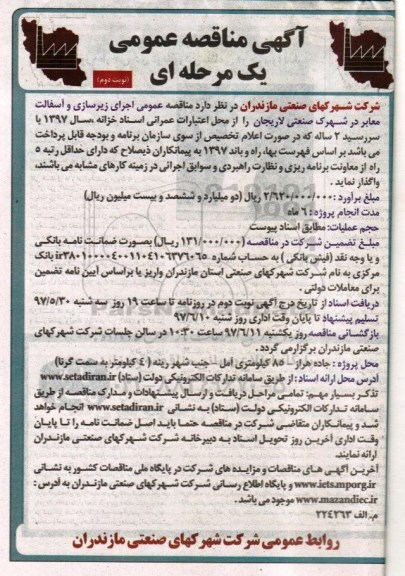 آگهی مناقصه عمومی
یک مرحله ای
(نوبت دوم)
شرکت شهرکهای صنعتی مازندران در نظر دارد مناقصه عمومی اجرای زیرسازی و آسفالت
معابر در شهرک صنعتی لاریجان را از محل اعتبارات عمرانی اسناد خزانه ،سال ۱۳۹۷ با
سررسید ۲ ساله که در صورت اعلام تخصیص از سوی سازمان برنامه و بودجه قابل پرداخت
می باشد بر اساس فهرست بها، راه و باند ۱۳۹۷ به پیمانکاران ذیصلاح که دارای حداقل رتبه ۵
راه از معاونت برنامه ریزی و نظارت راهبردی و سوابق اجرائی در زمینه کارهای مشابه می باشند،
واگذار نماید .
مبلغ برآورد : ۲/۶۲۰/۰۰۰/۰۰۰ ریال (دو میلیارد و ششصد و بیست میلیون ریال)
مدت انجام پروژه : ۶ ماه
حجم عملیات: مطابق اسناد پیوست
مبلغ تضمین شرکت در مناقصه (۱۳۱/۰۰۰/۰۰۰ ریال) بصورت ضمانت نامه بانکی
و یا وجه نقد (فیش بانکی) به حساب شماره ir۳۸۰۱۰۰۰۰۴۰۰۱۱۰۴۱۰۶۳۷۶۰۶۵ بانک
مرکزی به نام شرکت شهرکهای صنعتی استان مازندران واریز یا براساس آیین نامه تضمین
برای معاملات دولتی .
دریافت اسناد از تاریخ درج آگهی نوبت دوم در روزنامه تا ساعت ۱۹ روز سه شنبه ۹۷/۵/۳۰
تسلیم پیشنهاد تا پایان وقت اداری روز شنبه ۹۷/۶/۱۰
بازگشائی مناقصه روز یکشنبه ۹۷/۶/۱۱ ساعت ۱۰:۳۰ در سالن جلسات شرکت شهرکهای
صنعتی مازندران برگزار می گردد .
محل پروژه : جاده هراز – ۸۵ کیلومتری آمل – جنب شهر رینه (۴ کیلومتر به سمت گزنا)
آدرس محل ارائه اسناد : از طریق سامانه تدارکات الکترونیکی دولت (ستاد) www.setadiran.ir
تذکر بسیار مهم: تمامی مراحل دریافت و ارسال پیشنهادات و مدارک مناقصه از طریق
سامانه تدارکات الکترونیکی دولت (ستاد) به نشانی www.setadiran.ir انجام خواهد
شد و پیمانکاران متقاضی شرکت در مناقصه حتما باید اصل ضمانت نامه را تا پایان
وقت اداری آخرین روز تحویل اسناد به دبیرخانه شرکت شهرکهای صنعتی مازندران
ارائه نمایند.
آخرین آگهی های مناقصات و مزایده های شرکت در پایگاه ملی مناقصات کشور به نشانی
www.iets.mporg.ir و پایگاه اطلاع رسانی شرکت شهرکهای صنعتی مازندران به آدرس :
www.mazandiec.ir موجود می باشد .
م. الف ۲۲۴۲۶۳
روابط عمومی شرکت شهرکهای صنعتی مازندران